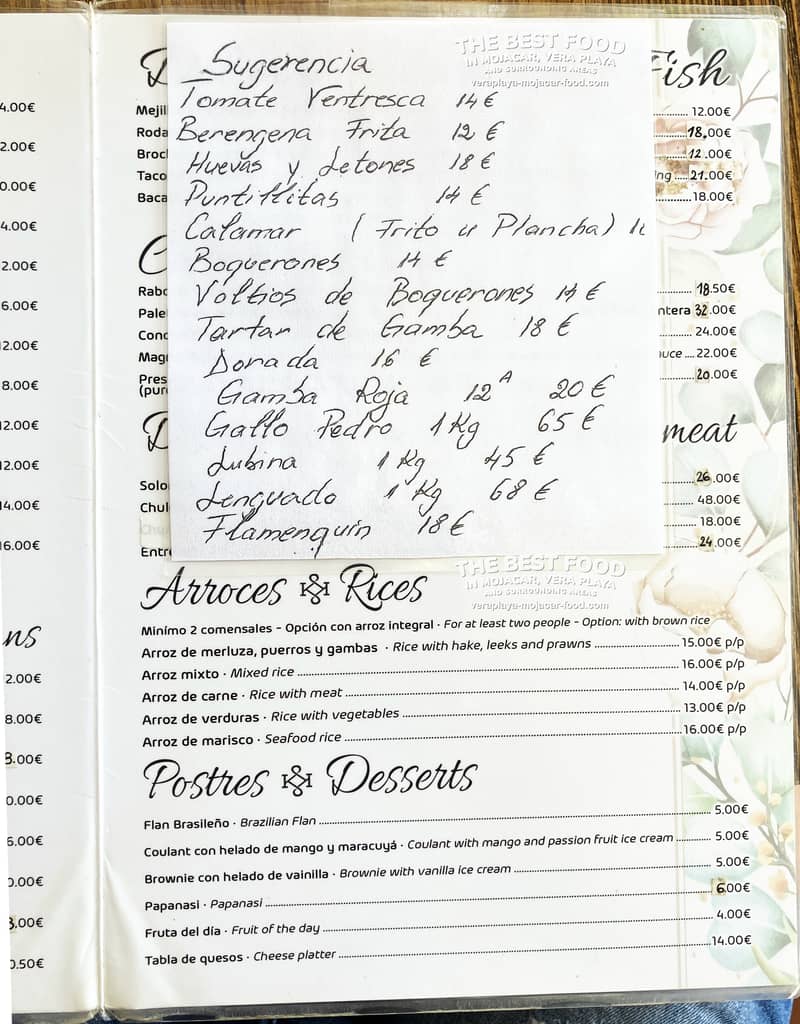 4.00€
2.00€
0.00€
4.00€
2.00€
6.00€
2.00€
8.00€
2.00€
2.00€
4.00€
6.00€
ns
2.00€
8.00€
3.00€
0.00€
6.00€
0.00€
3.00€
0.50€
Sugerencia
Tomate Ventresca 14 €
Berengena Frita 12 €
Huevas y Letones 18 €
Puntillitas 14 €
Calamar ( Frito u Plancha)
Boquerones 14 €
Voltios de Boquerones 14 €
Tartar de Gamba 18 €
Dorada 16 €
Gamba Roja 12A 20 €
Gallo Pedro 1 Kg 65 €
Lubina 1 Kg 45 €
Lenguado 1 Kg 68 €
Flamenquin 18 €
THE BEST FOOD
IN MOJACAR, VERA PLAYA
AND SURROUNDING AREAS
veraplaya-mojacar-food.com
Fish
Mejil 12.00€
Roda 18.00€
Broc 12.00€
Taco ing 21.00€
Baca 18.00€
C
Rabo 18.50€
Pale ntera 32.00€
Conc 24.00€
Mag uce 22.00€
Pres 20.00€
(pur
meat
Solo 26.00€
Chul 48.00€
18.00€
Entr 24.00€
THE BEST FOOD
IN MOJACAR, VERA PLAYA
AND SURROUNDING AREAS
veraplaya-mojacar-food.com
Arroces Rices
Mínimo 2 comensales - Opción con arroz integral · For at least two people - Option: with brown rice
Arroz de merluza, puerros y gambas · Rice with hake, leeks and prawns 15.00€ p/p
Arroz mixto · Mixed rice 16.00€ p/p
Arroz de carne · Rice with meat 14.00€ p/p
Arroz de verduras · Rice with vegetables 13.00€ p/p
Arroz de marisco · Seafood rice 16.00€ p/p
Postres Desserts
Flan Brasileño · Brazilian Flan 5.00€
Coulant con helado de mango y maracuyá · Coulant with mango and passion fruit ice cream 5.00€
Brownie con helado de vainilla · Brownie with vanilla ice cream 5.00€
Papanasi · Papanasi 6.00€
Fruta del día · Fruit of the day 4.00€
Tabla de quesos · Cheese platter 14.00€